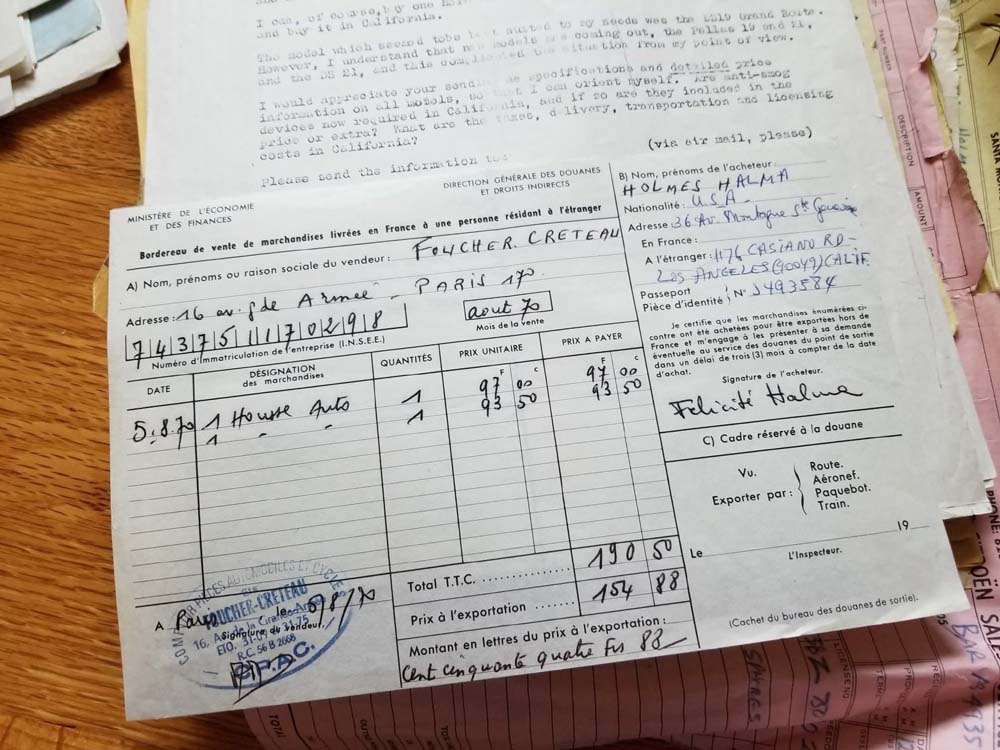 I can, of course, buy one
and buy it in California.
The model which seemed tobe best suited to my needs was the DS19 Grand Route.
However, I understand that new models are coming out, the Pallas 19 and 21,
and the DS 21, and this complicates the situation from my point of view.
I would appreciate your sending me specifications and detailed price
information on all models, so that I can orient myself. Are anti-smog
devices now required in California, and if so are they included in the
price or extra? What are the taxes, delivery, transportation and licensing
costs in California?
(via air mail, please)
Please send the information to:
MINISTÈRE DE L'ÉCONOMIE
ET DES FINANCES
DIRECTION GÉNÉRALE DES DOUANES
ET DROITS INDIRECTS
Bordereau de vente de marchandises livrées en France à une personne résidant à l'étranger
A) Nom, prénoms ou raison sociale du vendeur : FOUCHER. CRETEAU
Adresse : 16 av. gde Armée - PARIS 17o
743751170298
Numéro d'Immatriculation de l'entreprise (I.N.S.E.E.)
aout 70
Mois de la vente
DATE
DÉSIGNATION
des marchandises
QUANTITÉS
PRIX UNITAIRE
PRIX A PAYER
F C F C
5.8.70 1 Housse Auto 1 97 00 97 00
1 " " 1 93 50 93 50
Total T.T.C. .............. 190 50
Prix à l'exportation ....... 154 88
Montant en lettres du prix à l'exportation :
Cent cinquante quatre Frs 88
A Paris le 5/8/70
Signature du vendeur
COMPTOIR PIÈCES AUTOMOBILES ET CYCLES
FOUCHER-CRETEAU
16, Av. de la Grande-Armée
ETO. 31.75
R.C. 56 B 2668
B) Nom, prénoms de l'acheteur :
HOLMES HALMA
Nationalité : U.S.A.
Adresse : 36 Av. Montagne Ste
En France :
A l'étranger : 1176 CASIANO RD-
LOS ANGELES (90049) CALIF.
Passeport
Pièce d'identité N° J493584
Je certifie que les marchandises énumérées ci-
contre ont été achetées pour être exportées hors de
France et m'engage à les présenter à sa demande
éventuelle au service des douanes du point de sortie
dans un délai de trois (3) mois à compter de la date
d'achat.
Signature de l'acheteur.
Felicité Halma
C) Cadre réservé à la douane
Vu.
Exporter par :
Route.
Aéronef.
Paquebot.
Train.
Le 19
L'Inspecteur.
(Cachet du bureau des douanes de sortie).
PART NUMBER
DESCRIPTION
AMOUNT
SPARES
LICENSE NO
TOTAL